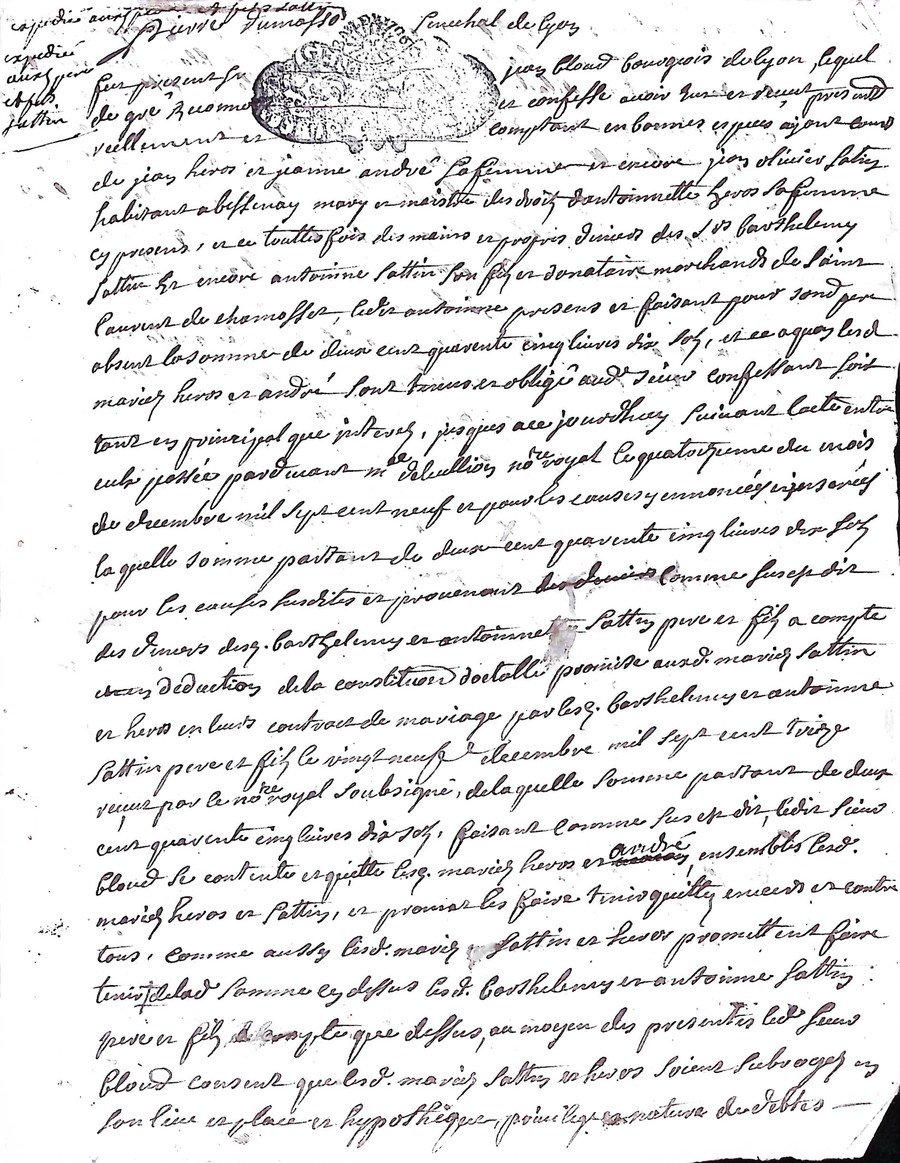 expedié aux pere et fils Sattin
Pierre Dumasso Senechal de Lyon
expedié
aux pere
et fils
Sattin
fut present Sr jean bloud bourgeois de lyon, lequel
de gré Reconnoi et confesse avoir eu et receut presente
reellement et comptant en bonnes especes ayant cours
de jean heros et jeanne andré sa femme et encore jean olivier Sattin
habitant a bessenay mary et maistre des droits d'antoinette heros sa femme
cy presens, et ce touttes fois des mains et propres deniers des Srs barthelemy
Sattin Et encore antoinne Sattin son fils et donataire marchands de Saint
laurent de chamosset, ledit antoinne presens et faisant pour sond pere
absent la somme de deux cent quarente cinq livres dix sols, et ce a quoy lesd
mariez heros et andré sont tenus et obligé aud. sieur confessant soit
tant en principal que interez, jusques a ce jourdhuy suivant l'acte entre
eux passée pardevant me debullioz nore royal le quatorzieme du mois
de decembre mil sept cent neuf et pour les causes y ennoncées inserées
la quelle somme partant de deux cent quarente cinq livres dix sols
pour les causes susdites et provenant des deniers comme susest dit
des deniers desd. barthelemy et antoinne Sattin pere et fils a compte
et en deduction de la constitution dotalle promise auxd. mariez Sattin
et heros en leurs contract de mariage par lesd. barthelemy et antoinne
Sattin pere et fils le vingt neufe decembre mil sept cent treize
receut par le nore royal soubsigné, de la quelle somme partant de deux
cent quarente cinq livres dix sols, faisant comme sus est dit, ledit sieur
bloud se contente et quitte lesd. mariez heros et andré, ensembles lesd.
mariez heros et Sattin, et promet les faire tenir quittes envers et contre
tous, comme aussy lesd. mariez Sattin et heros promettent faire
tenir de lad somme cy dessus lesd. barthelemy et antoinne Sattin
pere et fils a compte que dessus, au moyen des presentes led sieur
bloud consent que lesd. mariez Sattin et heros soient subrogez en
son lieu et place et hypothéque, privilege et nature de debtes